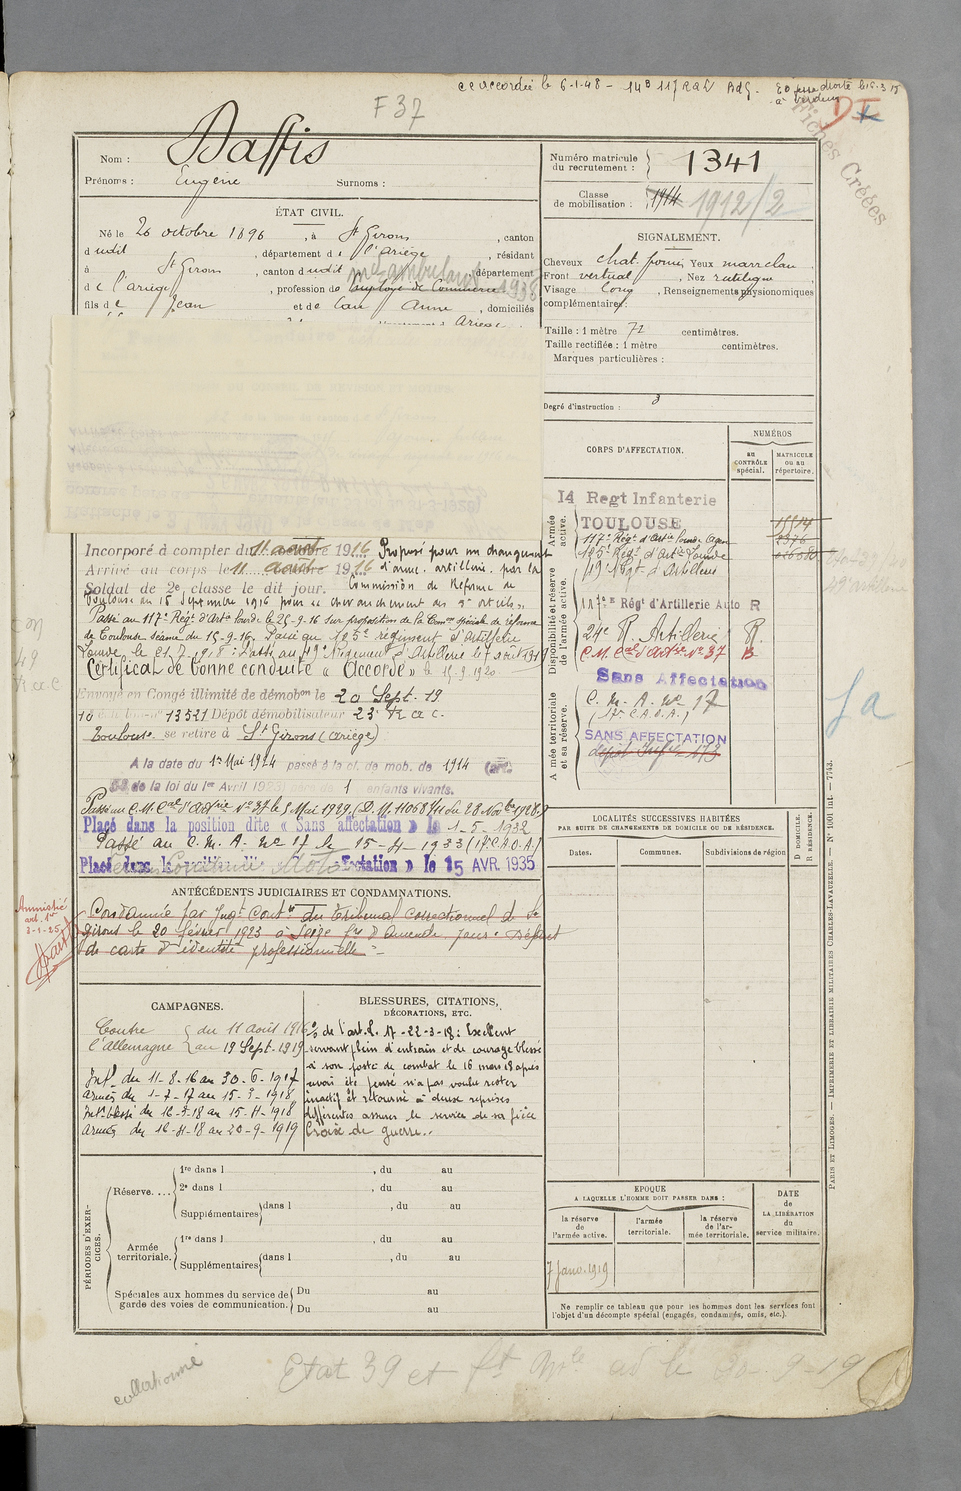 cc accordée le 6-1-48 - 143 117 RAL AdG. ED fesse droite le 16-3-18
à Verdun
F 37
DI
Fiches Créées
Nom : Daffis
Prénoms : Eugène Surnoms :
Numéro matricule du recrutement : 1341
Classe de mobilisation : 1914 1912/2
ÉTAT CIVIL.
Né le 26 octobre 1896, à St Girons, canton
dudit, département de l'Ariège, résidant
à St Girons, canton dudit, département
de l'Ariège, profession de Employé de Commerce
md ambulant 1938
fils de Jean et de Anne, domiciliés
Ariège
SIGNALEMENT.
Cheveux chat. foncé Yeux marr clair
Front vertical, Nez rectiligne
Visage long, Renseignements physionomiques
complémentaires :
Taille : 1 mètre 72 centimètres.
Taille rectifiée : 1 mètre centimètres.
Marques particulières :
Degré d'instruction : 3
CORPS D'AFFECTATION.
NUMÉROS
au CONTRÔLE spécial.
MATRICULE ou au répertoire.
Armée active.
14 Regt Infanterie
TOULOUSE
117e Régt d'Artie Lourde Agen
185e Régt d'Artie Lourde
49e Régt d'Artillerie
Disponibilité et réserve de l'armée active.
117e Régt d'Artillerie Auto R
24e R. Artillerie R.
C.M. Cal d'Artie No 37 R
Sans Affectation
Armée territoriale et sa réserve.
C. M. A. No 17
(17e C.A.O.A.)
SANS AFFECTATION
Incorporé à compter du 11 août 1916
Arrivé au corps le 11 août 1916
Soldat de 2e classe le dit jour.
Proposé pour un changement
d'arme. artillerie. par la
Commission de Réforme de
Toulouse du 15 Septembre 1916 pour "chevauchement des 2e orteils"
Passé au 117e Régt d'Artie Lourde le 25-9-16 sur proposition de la Comon spéciale de réforme
de Toulouse séance du 15-9-16. Passé au 185e régiment d'Artillerie
Lourde, le 21-2-1918 : Passé au 49e Régiment d'Artillerie le 7 août 1919
Certificat de bonne conduite "Accordé" le 15-9-1920
Envoyé en Congé illimité de démobon le 20 Sept. 19
13521 Dépôt démobilisateur 23e R a c.
Toulouse se retire à St Girons (Ariège)
A la date du 1er Mai 1924 passé à la cl. de mob. de 1914 (art.
58 de la loi du 1er Avril 1923) père de 1 enfants vivants.
Passé au C.M. Cal d'Artie No 37 le 1 Mai 1929 (D.M. 11068 1/11 du 28 Novbre 1928.)
Placé dans la position dite « Sans affectation » le 1-5-1932
Passé au C. M. A. No 17 le 15-4-1933 (17e C.A.O.A.)
Placé dans la position dite « Sans affectation » le 15 AVR. 1935
LOCALITÉS SUCCESSIVES HABITÉES
PAR SUITE DE CHANGEMENTS DE DOMICILE OU DE RÉSIDENCE.
Dates.
Communes.
Subdivisions de région
D DOMICILE.
R RÉSIDENCE.
ANTÉCÉDENTS JUDICIAIRES ET CONDAMNATIONS.
Amnistié
art. 1er
3-1-25
Condamné par Jugt Contre du Tribunal correctionnel de St
Girons le 20 février 1923 à Seize frs d'Amende pour "Défaut
de carte d'identité professionnelle"
CAMPAGNES.
Contre l'Allemagne { du 11 août 1916
au 19 Sept. 1919
Intr. du 11-8-16 au 30-6-1917
Armées du 1-7-17 au 15-3-1918
Intr. blessé du 16-3-18 au 15-11-1918
Armées du 16-11-18 au 20-9-1919
BLESSURES, CITATIONS,
DÉCORATIONS, ETC.
de l'art. L. 17-22-3-18 : Excellent
servant plein d'entrain et de courage blessé
à son poste de combat le 16 mars 18 après
avoir été pansé n'a pas voulu rester
inactif et retourné à deux reprises
différentes assurer le service de sa pièce
Croix de guerre..
PÉRIODES D'EXERCICES.
Réserve....
1re dans l , du au
2e dans l , du au
Supplémentaires dans l , du au
Armée territoriale.
1re dans l , du au
Supplémentaires dans l , du au
Spéciales aux hommes du service de garde des voies de communication.
Du au
Du au
EPOQUE
A LAQUELLE L'HOMME DOIT PASSER DANS :
la réserve de l'armée active.
l'armée territoriale.
la réserve de l'armée territoriale.
DATE de LA LIBÉRATION du service militaire.
7 Janv. 1919
Ne remplir ce tableau que pour les hommes dont les services font
l'objet d'un décompte spécial (engagés, condamnés, omis, etc.).
PARIS ET LIMOGES. — IMPRIMERIE ET LIBRAIRIE MILITAIRES CHARLES-LAVAUZELLE. — N° 1001 int. — 7743.
collationné
Etat 39 et ad le 30-9-19